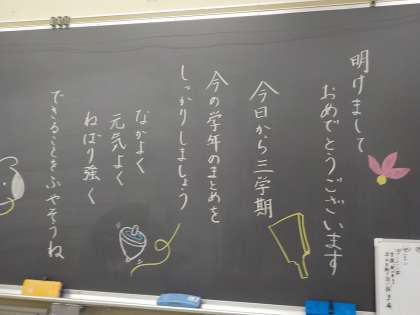 明けまして
おめでとうございます
今日から三学期
今の学年のまとめを
しっかりしましょう
なかよく
元気よく
ねばり強く
できることをふやそうね